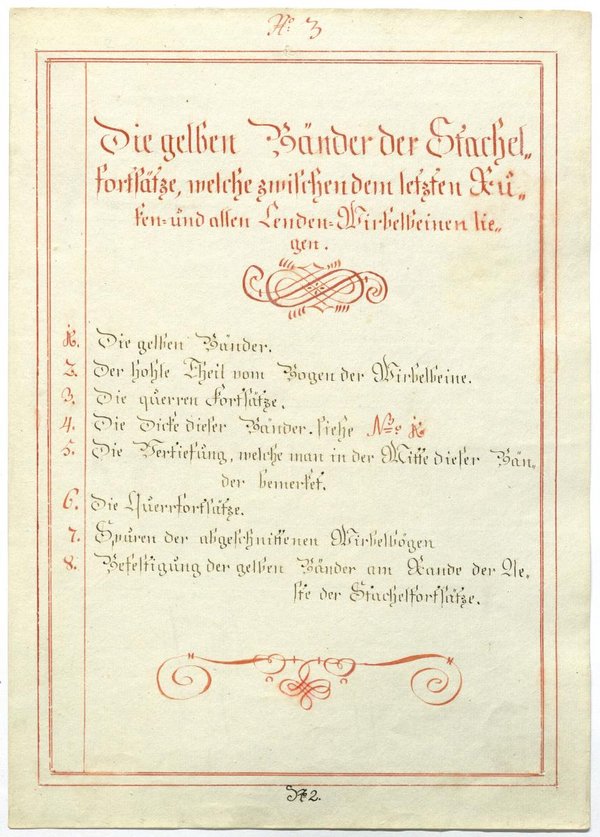 No. 3
Die gelben Bänder der Stachel„
fortsätze, welche zwischen dem letzten Rü„
ken= und allen Lenden=Wirbelbeinen lie„
gen.
1. Die gelben Bänder.
2. Der hohle Theil vom Bogen der Wirbelbeine.
3. Die querren Fortsätze.
4. Die Dicke dieser Bänder. siehe No. 1
5. Die Vertiefung, welche man in der Mitte dieser Bän„
der bemerket.
6. Die Querrfortsätze.
7. Spuren der abgeschnittenen Wirbelbögen
8. Befestigung der gelben Bänder am Rande der Ae„
ste der Stachelfortsätze.
No 2.